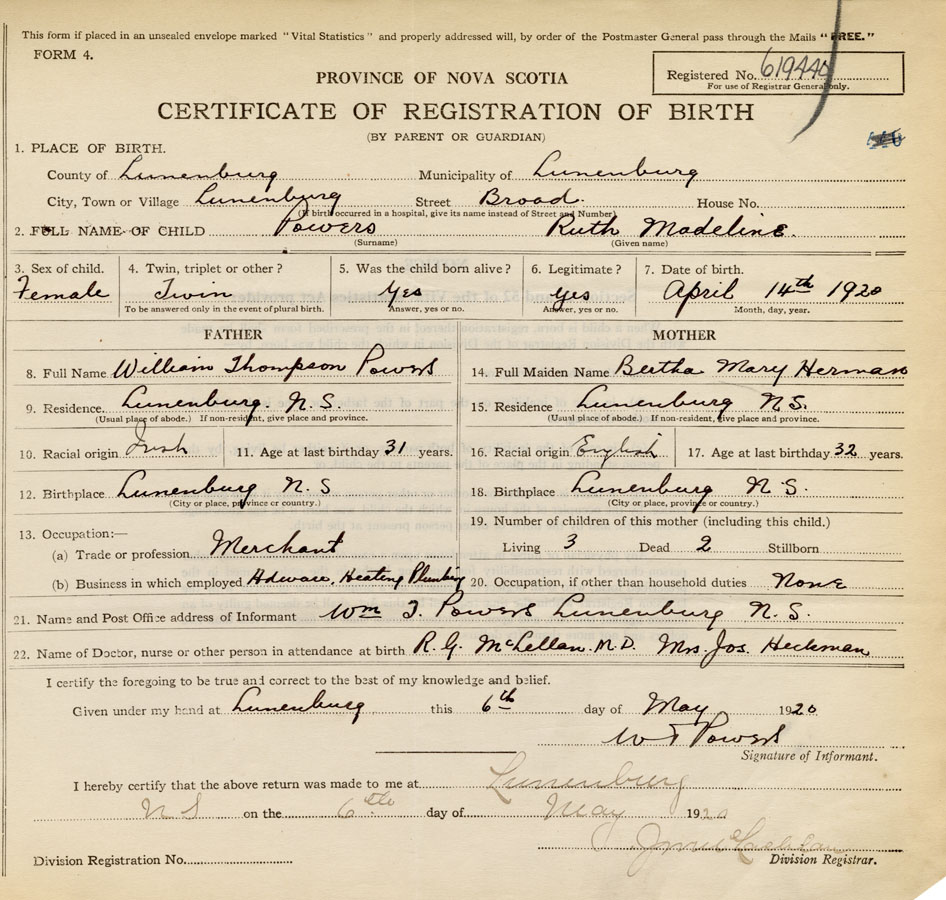 This form if placed in an unsealed envelope marked "Vital Statistics" and properly addressed will, by order of the Postmaster General pass through the Mails "FREE."
FORM 4.
PROVINCE OF NOVA SCOTIA
Registered No. 619440
For use of Registrar General only.
CERTIFICATE OF REGISTRATION OF BIRTH
(BY PARENT OR GUARDIAN)
1. PLACE OF BIRTH.
County of Lunenburg Municipality of Lunenburg
City, Town or Village Lunenburg Street Broad. House No.
(If birth occurred in a hospital, give its name instead of Street and Number)
2. FULL NAME OF CHILD Powers Ruth Madeline.
(Surname) (Given name)
3. Sex of child. 4. Twin, triplet or other? 5. Was the child born alive? 6. Legitimate? 7. Date of birth.
Female Twin Yes yes April 14th 1920
To be answered only in the event of plural birth. Answer, yes or no. Answer, yes or no. Month, day, year.
FATHER MOTHER
8. Full Name William Thompson Powers 14. Full Maiden Name Bertha Mary Herman
9. Residence Lunenburg. N.S. 15. Residence Lunenburg N.S.
(Usual place of abode.) If non-resident, give place and province. (Usual place of abode.) If non-resident, give place and province.
10. Racial origin Irish 11. Age at last birthday 31 years. 16. Racial origin English 17. Age at last birthday 32 years.
12. Birthplace Lunenburg N.S 18. Birthplace Lunenburg N.S.
(City or place, province or country.) (City or place, province or country.)
13. Occupation:— 19. Number of children of this mother (including this child.)
(a) Trade or profession Merchant Living 3 Dead 2 Stillborn
(b) Business in which employed Hdware, Heating Plumbing 20. Occupation, if other than household duties None
21. Name and Post Office address of Informant Wm T. Powers Lunenburg N.S.
22. Name of Doctor, nurse or other person in attendance at birth R.G. McLellan. M.D. Mrs Jos. Heckman
I certify the foregoing to be true and correct to the best of my knowledge and belief.
Given under my hand at Lunenburg this 6th day of May 1920
W T Powers
Signature of Informant.
I hereby certify that the above return was made to me at Lunenburg
N S on the 6th day of May 1920
Division Registration No. Division Registrar.